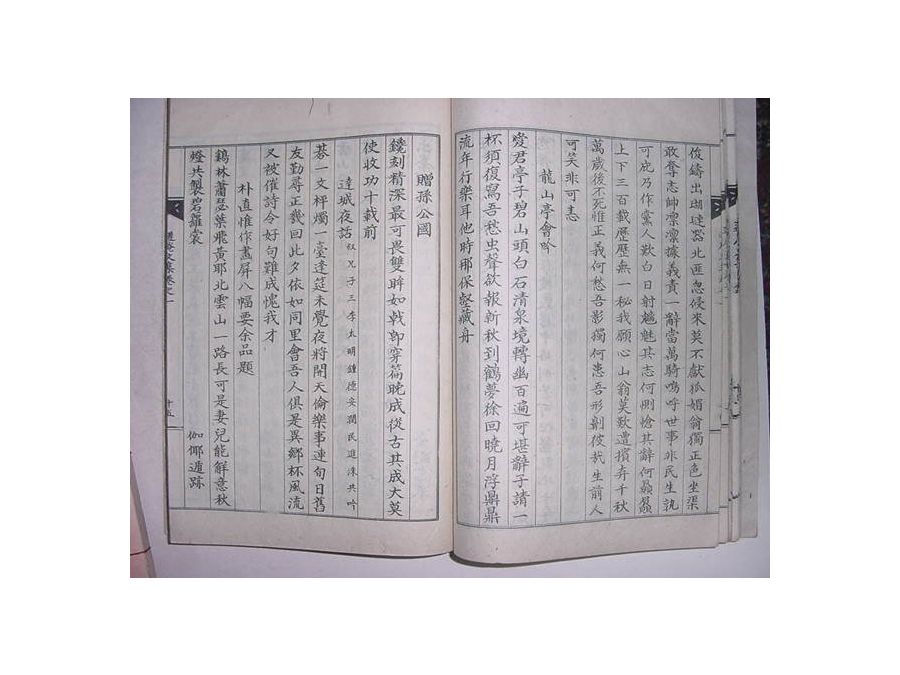 俊鑄出瑚璉器北匪忽侵來莫不獻狐媚翁獨正色坐渠
敢奪志帥凜凜據義責一辭當萬騎嗚呼世事非民生孰
可庇乃作棠人歎白日射魑魅其志何惻愴其辭何
上下三百載歷歷無一秘我願心山翁莫歎遭擯弃千秋
萬歲後不死惟正義何愁吾影獨何患吾形劓彼哉生前人
可笑非可恚
龍山亭會吟
愛君亭子碧山頭白石清泉境轉幽百遍可堪辭子請一
杯須復寫吾愁虫聲欲報新秋到鶴夢徐回曉月浮鼎鼎
流年行樂耳他時那保壑藏舟
贈孫公國
鑱刻精深最可畏雙眸如戟卽穿篇晩成從古其成大莫
使收功十載前
達城夜話 叔兄子三李太明鍾德安潤民進洙共吟
棊一文枰燭一臺逢筵未覺夜將開天倫樂事連旬日舊
友勤尋正幾回此夕依如同里會吾人俱是異鄕杯風流
又被催詩令好句難成愧我才
朴直惟作畵屏八幅要余品題
鷄林蕭瑟葉飛黃耶北雲山一路長可是妻兒能解意秋
燈共製碧蘿裳 伽倻遁跡
文集卷之一
十五